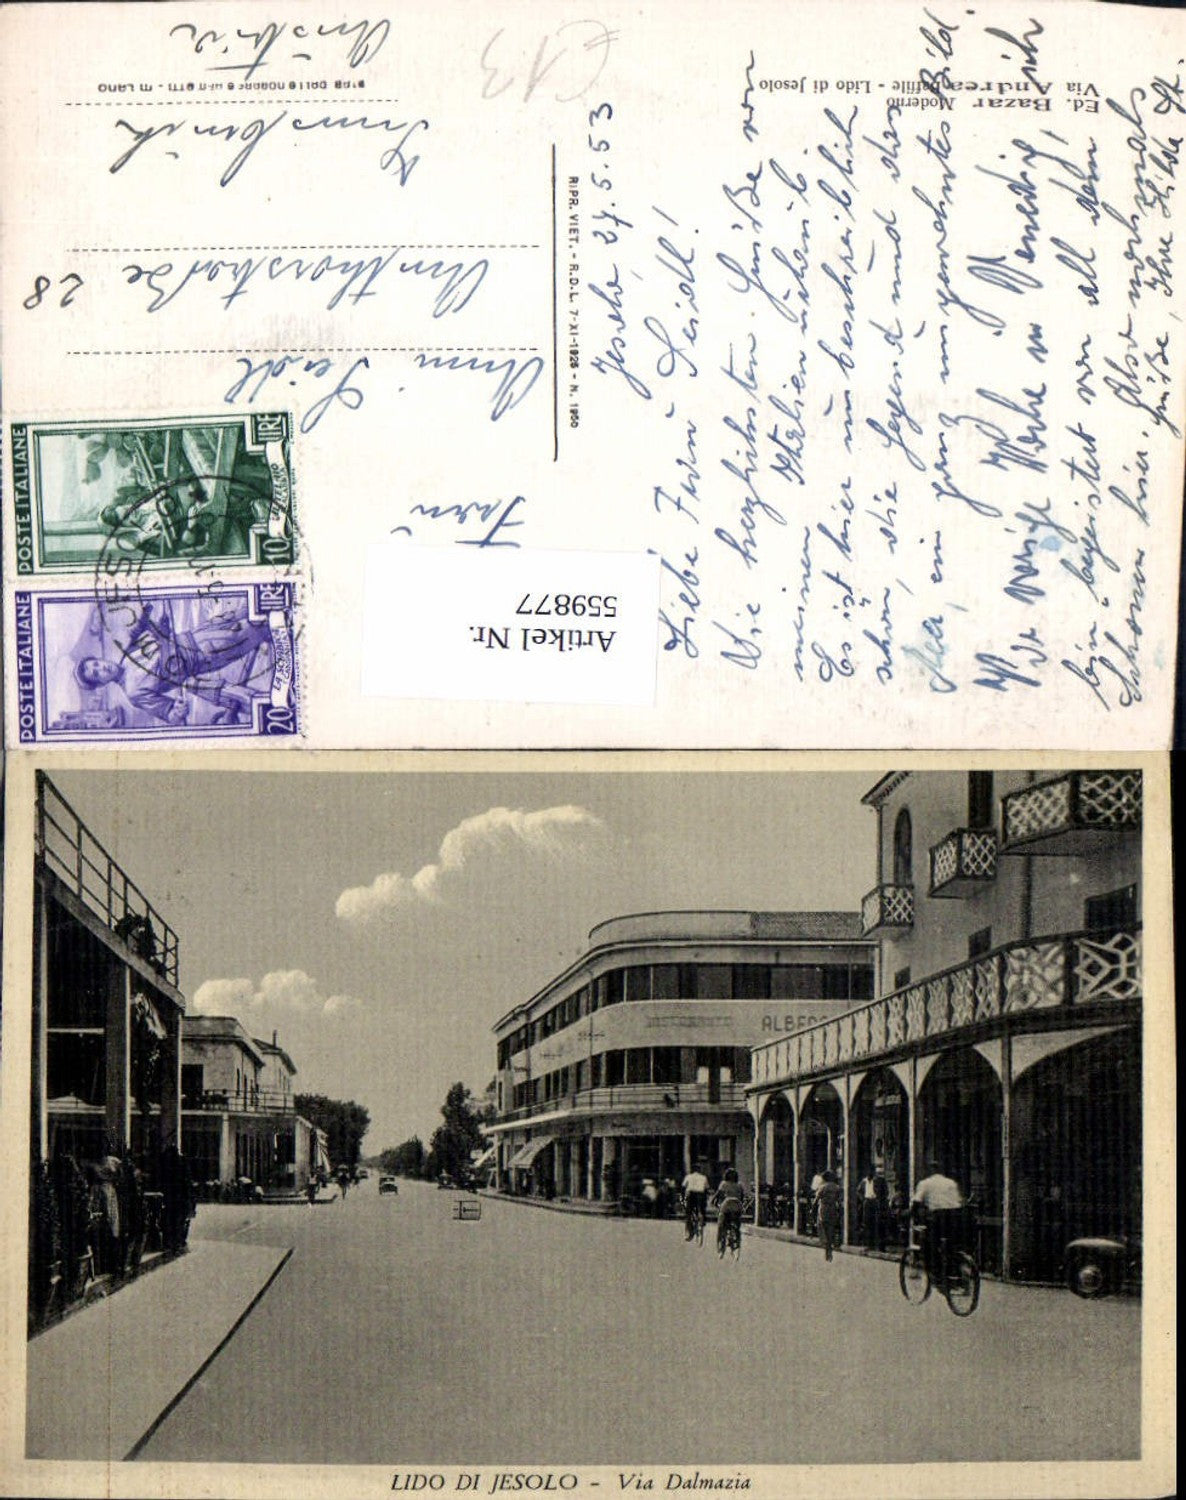 Ed. Bazar Moderno
Via Andrea Baffile - Lido di Jesolo
Jesolo, 27.5.53
Liebe Frau Seidl!
Die herzlichsten Grüße von
meinem Italienurlaub.
Es ist hier unbeschreiblich
schön, die Gegend und das
Meer, ein ganz ungewohntes Bild.
Vorige Woche war ich in Venedig, ich
bin begeistert von all dem
Schönen hier. Also nochmals
Grüße, Ihre Hilda
RIPR. VIET. - R.D.L. 7-XI-1925 - N. 1950
Frau
Anni Seidl
Anthorstraße 28
Innsbruck
Austria
STAB. DALLE NOGARE E ARMETTI - MILANO
€13
POSTE ITALIANE
10 LIRE
POSTE ITALIANE
20 LIRE
Artikel Nr.
559877
ALBERGO
LIDO DI JESOLO - Via Dalmazia